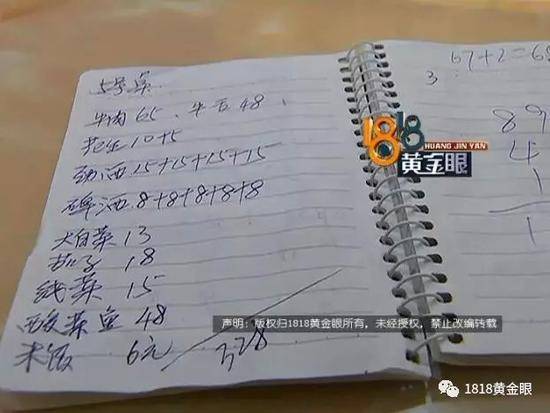 5号菜
牛肉65、牛舌48、
花生10+5
劲酒15+15+15+15
啤酒8+8+8+8+8
大白菜13
茄子18
线菜15
酸菜鱼48
米饭 6元 328
67+2=6
3
89
4
1
1
1818
HUANG JIN YAN
黄金眼
声明：版权归1818黄金眼所有，未经授权，禁止改编转载
1818黄金眼